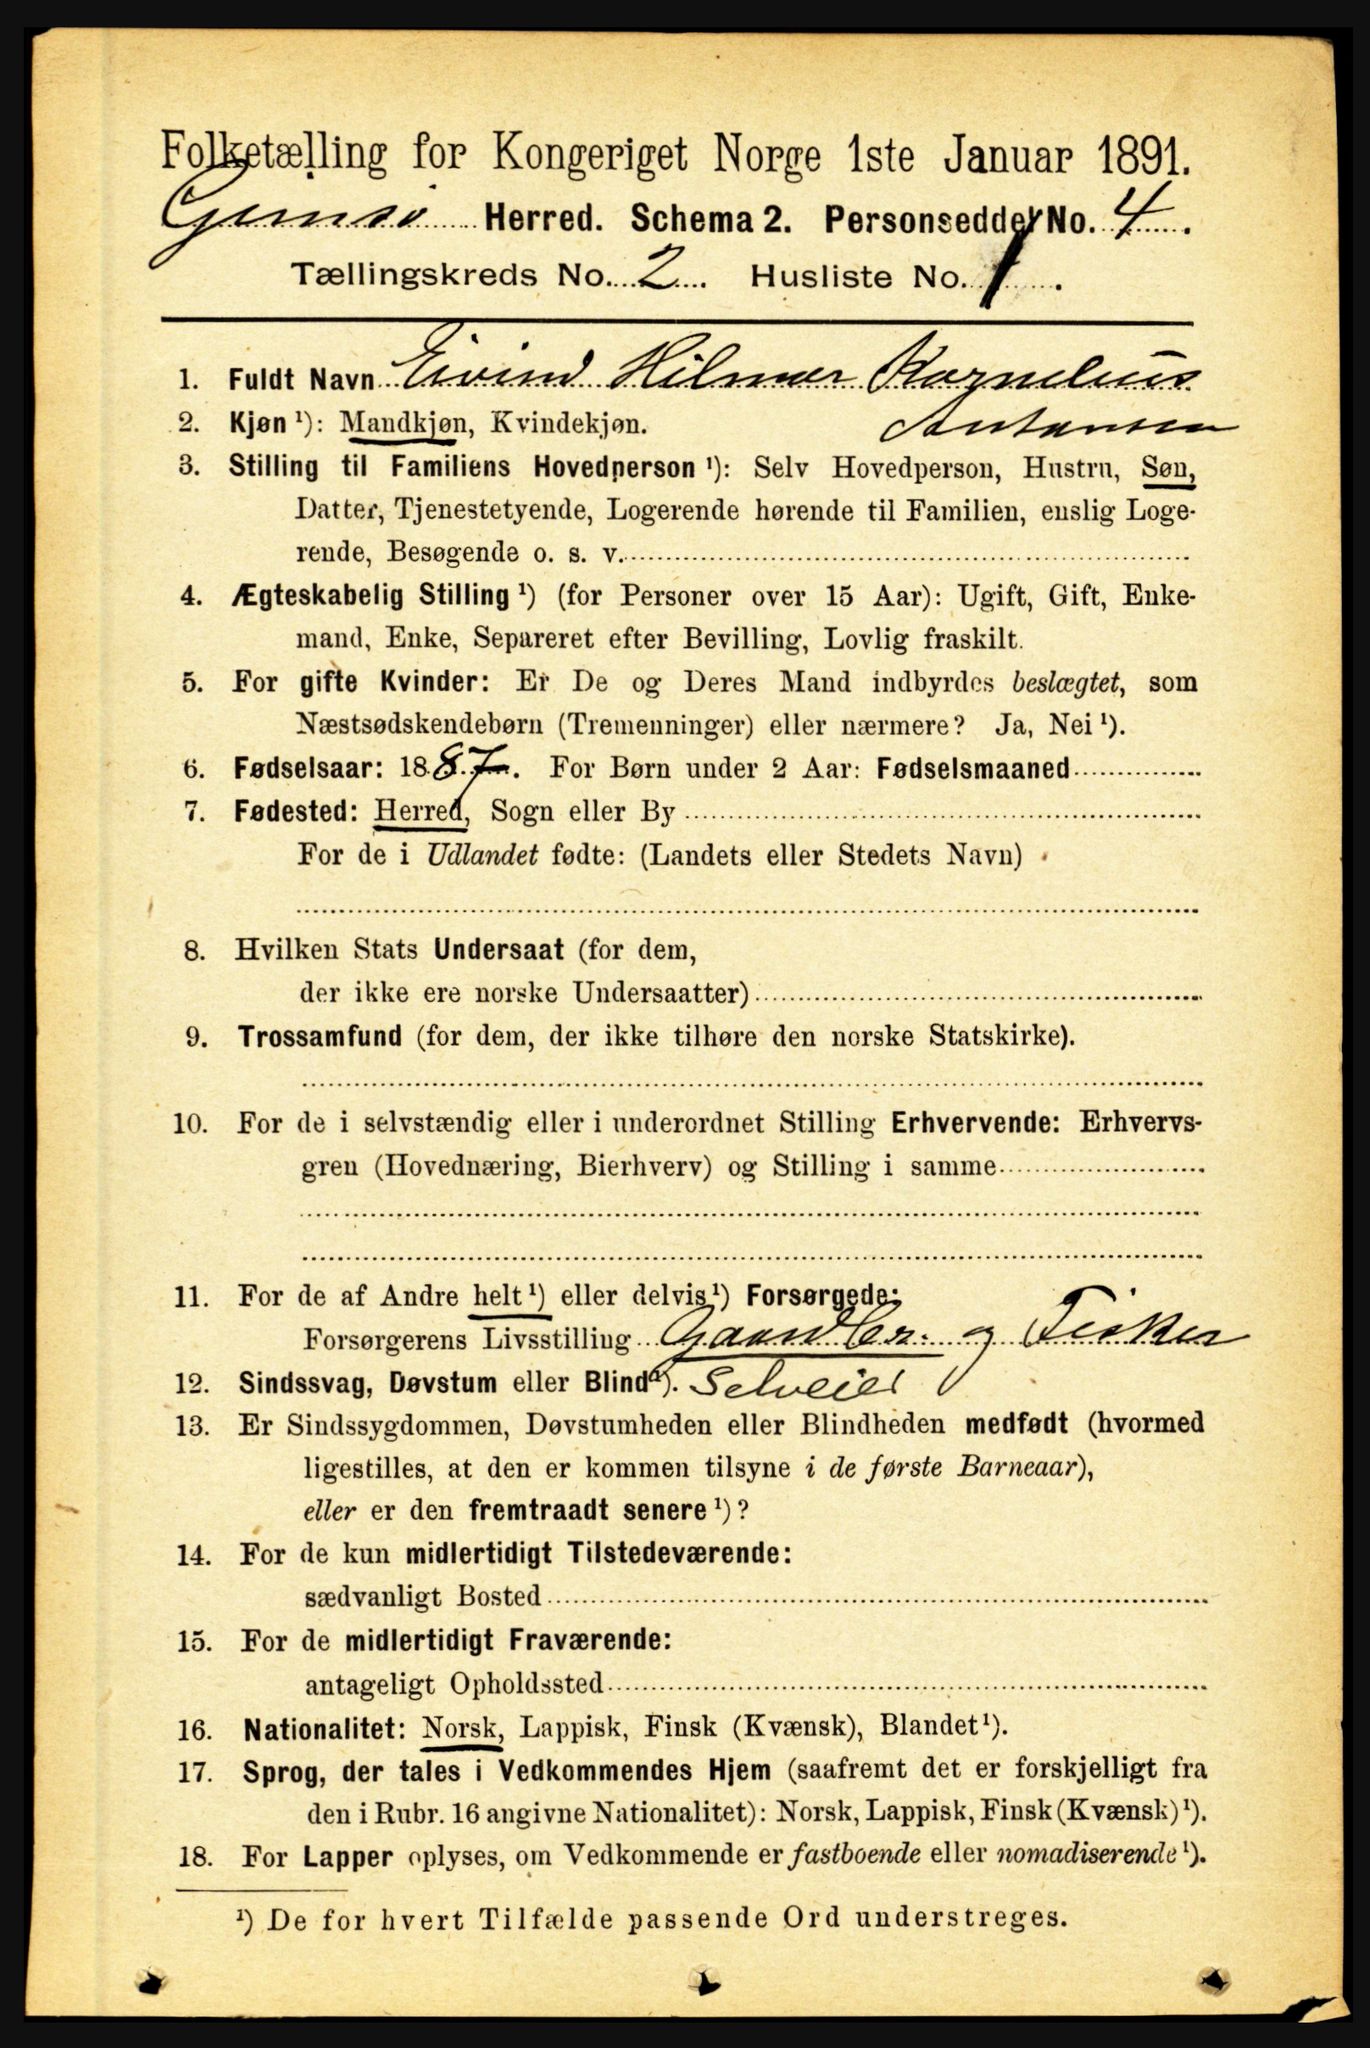 Folketælling for Kongeriget Norge 1ste Januar 1891.
Gimsø Herred. Schema 2. Personseddel No. 4.
Tællingskreds No. 2. Husliste No. 1.
1. Fuldt Navn Eivind Hilmar Kornelius
2. Kjøn ¹): Mandkjøn, Kvindekjøn. Antonsen
3. Stilling til Familiens Hovedperson ¹): Selv Hovedperson, Hustru, Søn,
Datter, Tjenestetyende, Logerende hørende til Familien, enslig Loge-
rende, Besøgende o. s. v.
4. Ægteskabelig Stilling ¹) (for Personer over 15 Aar): Ugift, Gift, Enke-
mand, Enke, Separeret efter Bevilling, Lovlig fraskilt.
5. For gifte Kvinder: Er De og Deres Mand indbyrdes beslægtet, som
Næstsødskendebørn (Tremenninger) eller nærmere? Ja, Nei ¹).
6. Fødselsaar: 1887. For Børn under 2 Aar: Fødselsmaaned
7. Fødested: Herred, Sogn eller By
For de i Udlandet fødte: (Landets eller Stedets Navn)
8. Hvilken Stats Undersaat (for dem,
der ikke ere norske Undersaatter)
9. Trossamfund (for dem, der ikke tilhøre den norske Statskirke).
10. For de i selvstændig eller i underordnet Stilling Erhvervende: Erhvervs-
gren (Hovednæring, Bierhverv) og Stilling i samme
11. For de af Andre helt ¹) eller delvis ¹) Forsørgede:
Forsørgerens Livsstilling Gaardbr. og Fisker
12. Sindssvag, Døvstum eller Blind ¹). Selveier
13. Er Sindssygdommen, Døvstumheden eller Blindheden medfødt (hvormed
ligestilles, at den er kommen tilsyne i de første Barneaar),
eller er den fremtraadt senere ¹)?
14. For de kun midlertidigt Tilstedeværende:
sædvanligt Bosted
15. For de midlertidigt Fraværende:
antageligt Opholdssted
16. Nationalitet: Norsk, Lappisk, Finsk (Kvænsk), Blandet ¹).
17. Sprog, der tales i Vedkommendes Hjem (saafremt det er forskjelligt fra
den i Rubr. 16 angivne Nationalitet): Norsk, Lappisk, Finsk (Kvænsk) ¹).
18. For Lapper oplyses, om Vedkommende er fastboende eller nomadiserende ¹).
¹) De for hvert Tilfælde passende Ord understreges.